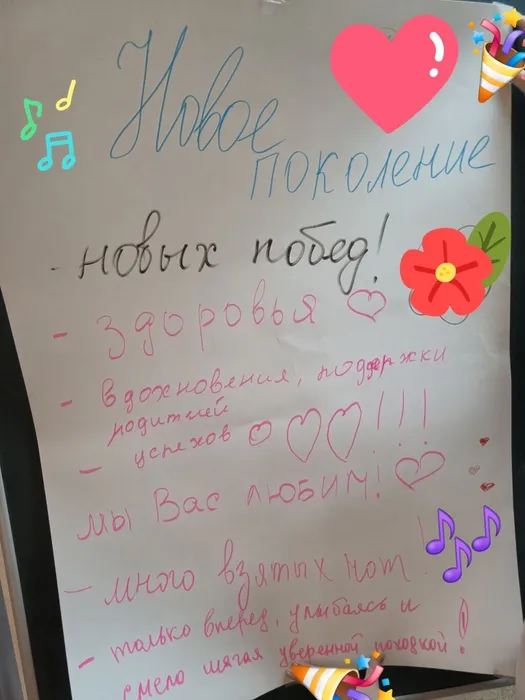 Новое
поколение
- новых побед!
- здоровья
- вдохновения, поддержки
родителей
- успехов !!!
мы Вас любим!
- много взятых нот !
- только вперед, улыбаясь и
смело шагая уверенной походкой!